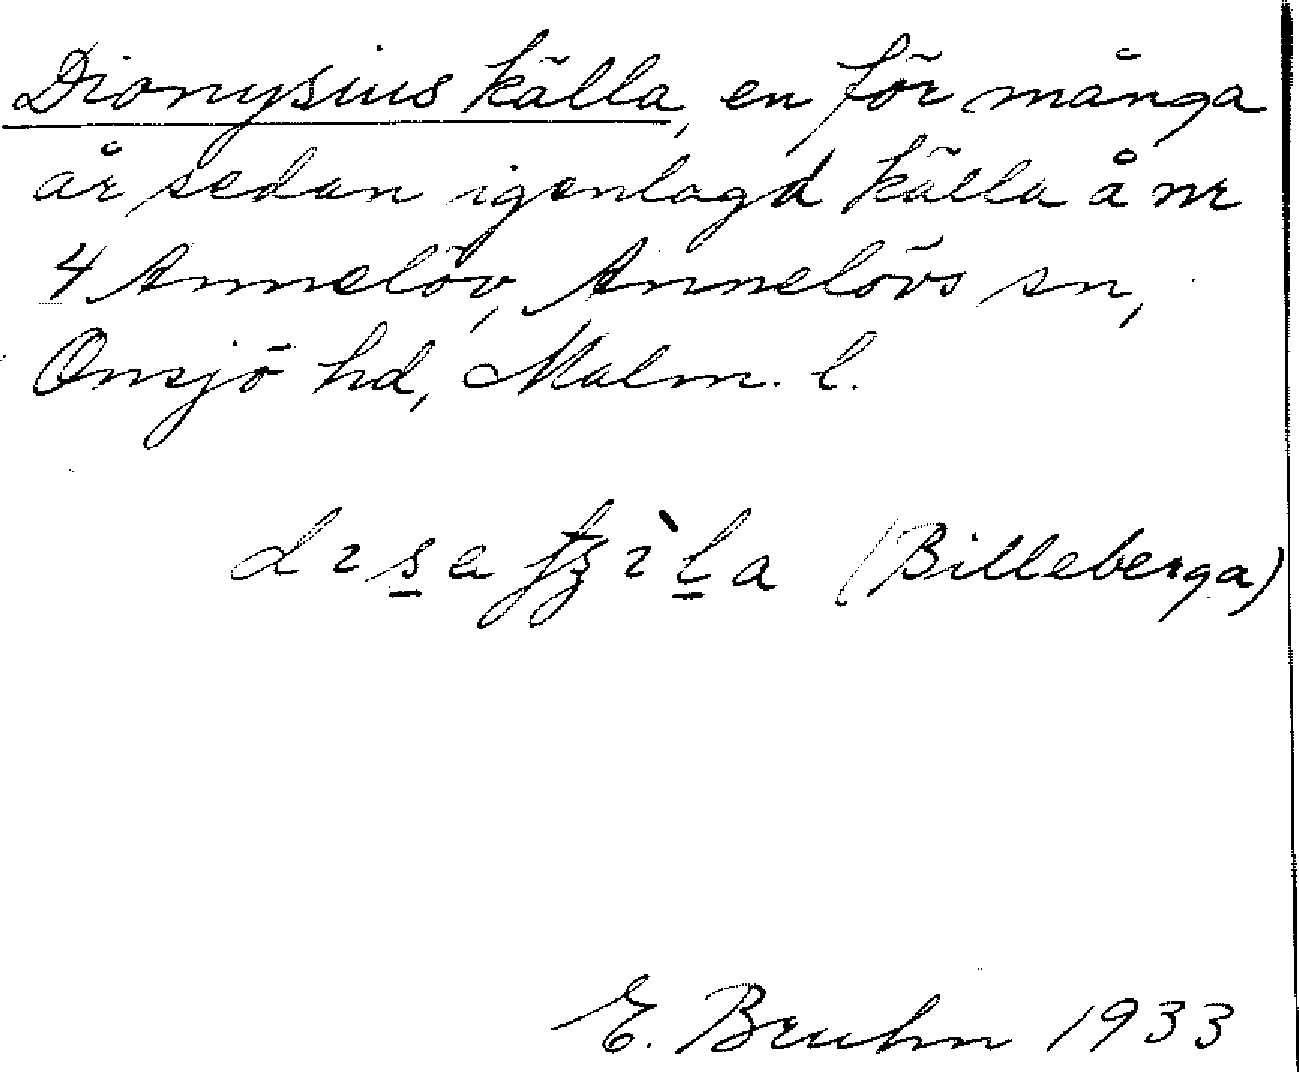 Dionysius källa, en för många
år sedan igenlagd källa å nr
4 Annelöv, Annelövs sn,
Onsjö hd, Malm. l.
(Billeberga)
E. Bruhn 1933